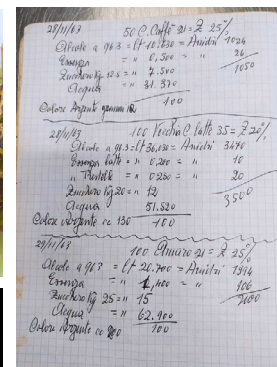 28/11/63 50 C. Caffè 21 = Z 25%
Alcole a 96.3 = lt 10.630 = Anidri 1024
Essenza = " 0,500 = " 26
Zucchero Kg 12.5 = " 7.500 1050
Acqua = " 31.370
Colore Argente 100
28/11/63 100 Vecchia C latte 35 = Z 20%
Alcole a 96.3 = lt 36,130 = Anidri 3470
Essenza latte = " 0.200 = " 10
" = " 0.250 = " 20
Zucchero Kg 20 = " 12 3500
Acqua 51.520
Colore Argente cc 130 100
29/11/63 100 Amaro 21 = Z 25%
Alcole a 96.3 = lt 20.700 = Anidri 1994
Essenza = " 1,400 = " 106
Zucchero Kg 25 = " 15 2100
Acqua = " 62.900
Colore Argente cc 100